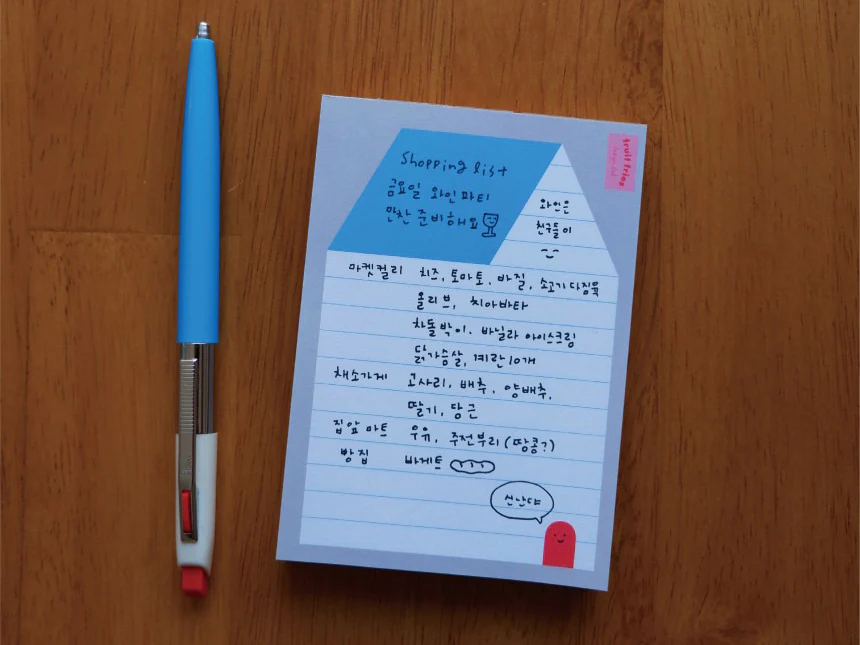 fruit fries
Shopping list
금요일 와인파티
만찬 준비해요
와인은
친구들이
마켓컬리 치즈, 토마토, 바질, 소고기다짐육
올리브, 치아바타
차돌박이, 바닐라 아이스크림
닭가슴살, 계란 10개
채소가게 고사리, 배추, 양배추,
딸기, 당근
집앞 마트 우유, 주전부리 (땅콩?)
빵집 바게트
신난다